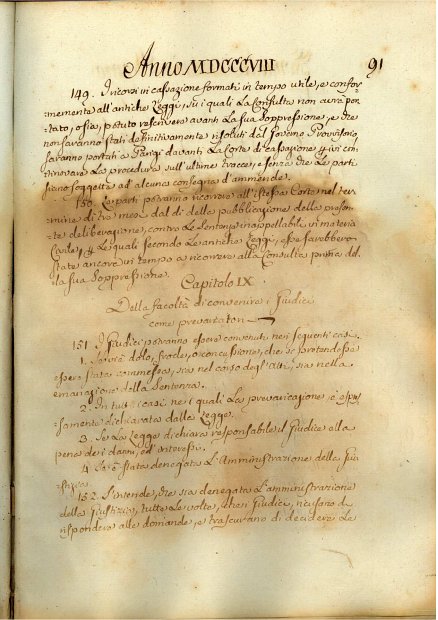 Anno MDCCCVIII 91
149. I ricorsi in cassazione formati in tempo utile, e confor-
memente all'antiche Leggi, su i quali La Consulta non aurà por-
tato, o sia, potuto rescrivere avanti La sua Soppressione, e che
non saranno stati definitivamente risoluti dal Governo Provvisorio,
saranno portati a Parigi davanti La Corte di cassazione, ivi con-
tinuerà La procedura sull'ultime tracce, e senza che Le parti
siano soggette ad alcuna consegna d'ammende.
150. Le parti potranno ricorrere all'istessa Corte nel ter-
mine di tre mesi dal dì della pubblicazione della presen-
te deliberazione, contro Le Sentenze inappellabili in materia
Civile, Le quali secondo Le antiche Leggi, sarebbero
state ancora in tempo a ricorrere alla Consulta prima del-
la sua Soppressione.
Capitolo IX.
Della facoltà di convenire i Giudici
come prevaricatori
151. I Giudici potranno essere convenuti nei seguenti casi.
1. Se v'è dolo, frode, o concessione, che si pretendesse
essere stata commessa, sia nel corso degl'Atti, sia nella
emanazione della Sentenza.
2. In tutti i casi ne i quali La prevaricazione è espres-
samente dichiarata dalla Legge.
3. Se La Legge dichiara responsabile il Giudice alla
pena de i danni, ed interessi.
4. Se è stata denegata L'Amministrazione della Giu-
stizia.
152. S'intende, che sia denegata L'amministrazione
della Giustizia, tutte Le volte, che i Giudici, ricusano di
rispondere alle domande, e trascurano di decidere Le